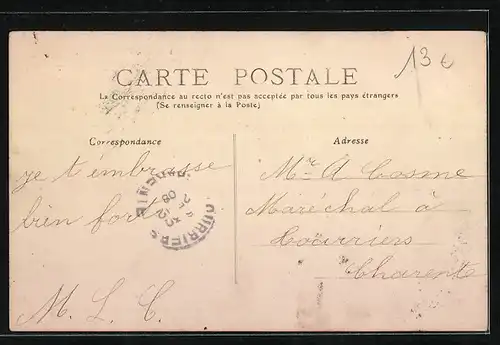 13 €
CARTE POSTALE
La Correspondance au recto n'est pas acceptée par tous les pays étrangers
(Se renseigner à la Poste)
Correspondance
Adresse
je t'embrasse
bien fort
M. L. C.
Mr A Cosme
Maréchal à
Courriers
Charente
COURRIERS